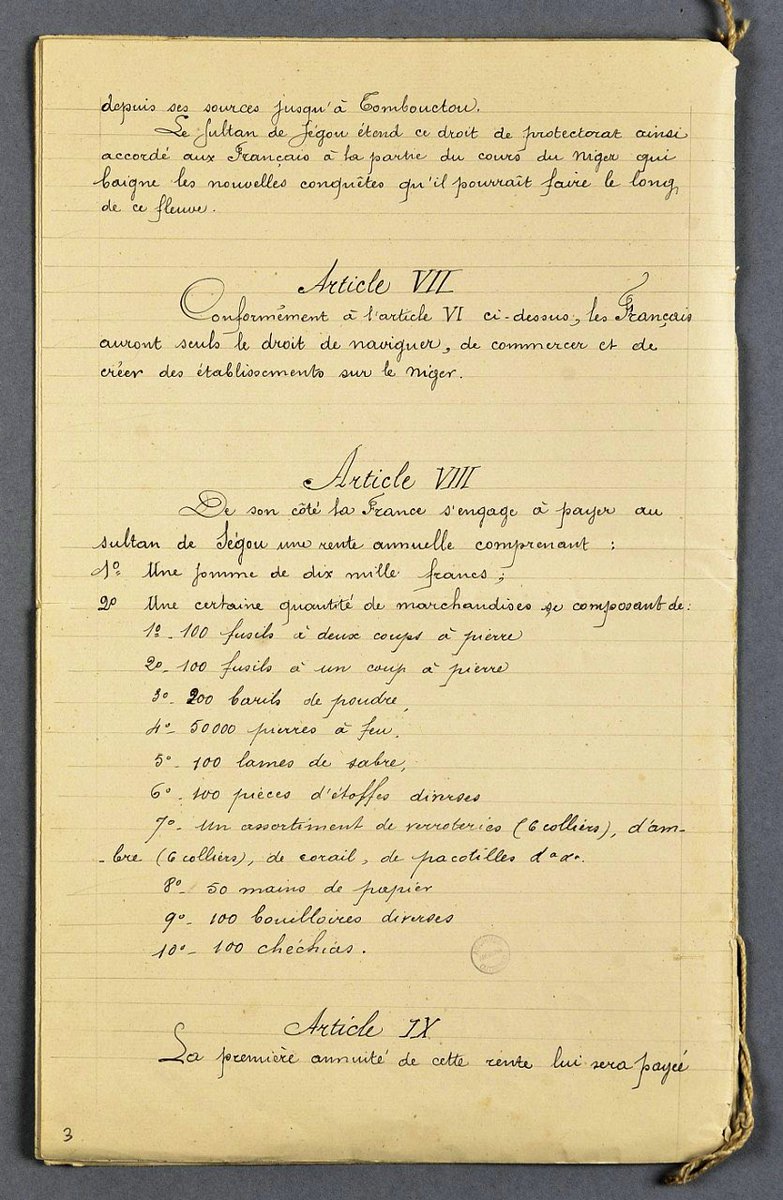 depuis ses sources jusqu'à Tombouctou.
Le Sultan de Ségou étend ce droit de protectorat ainsi
accordé aux Français à la partie du cours du Niger qui
baigne les nouvelles conquêtes qu'il pourrait faire le long
de ce fleuve.
Article VII
Conformément à l'article VI ci-dessus, les Français
auront seuls le droit de naviguer, de commercer et de
créer des établissements sur le Niger.
Article VIII
De son côté la France s'engage à payer au
sultan de Ségou une rente annuelle comprenant :
1º Une somme de dix mille francs ;
2º Une certaine quantité de marchandises se composant de :
1º - 100 fusils à deux coups à pierre
2º - 100 fusils à un coup à pierre
3º - 200 barils de poudre,
4º - 50000 pierres à feu,
5º - 100 lames de sabre,
6º - 100 pièces d'étoffes diverses
7º - Un assortiment de verroteries (6 colliers), d'am-
-bre (6 colliers), de corail, de pacotilles
8º - 50 mains de papier
9º - 100 bouilloires diverses
10º - 100 chéchias.
Article IX
La première annuité de cette rente lui sera payée
3